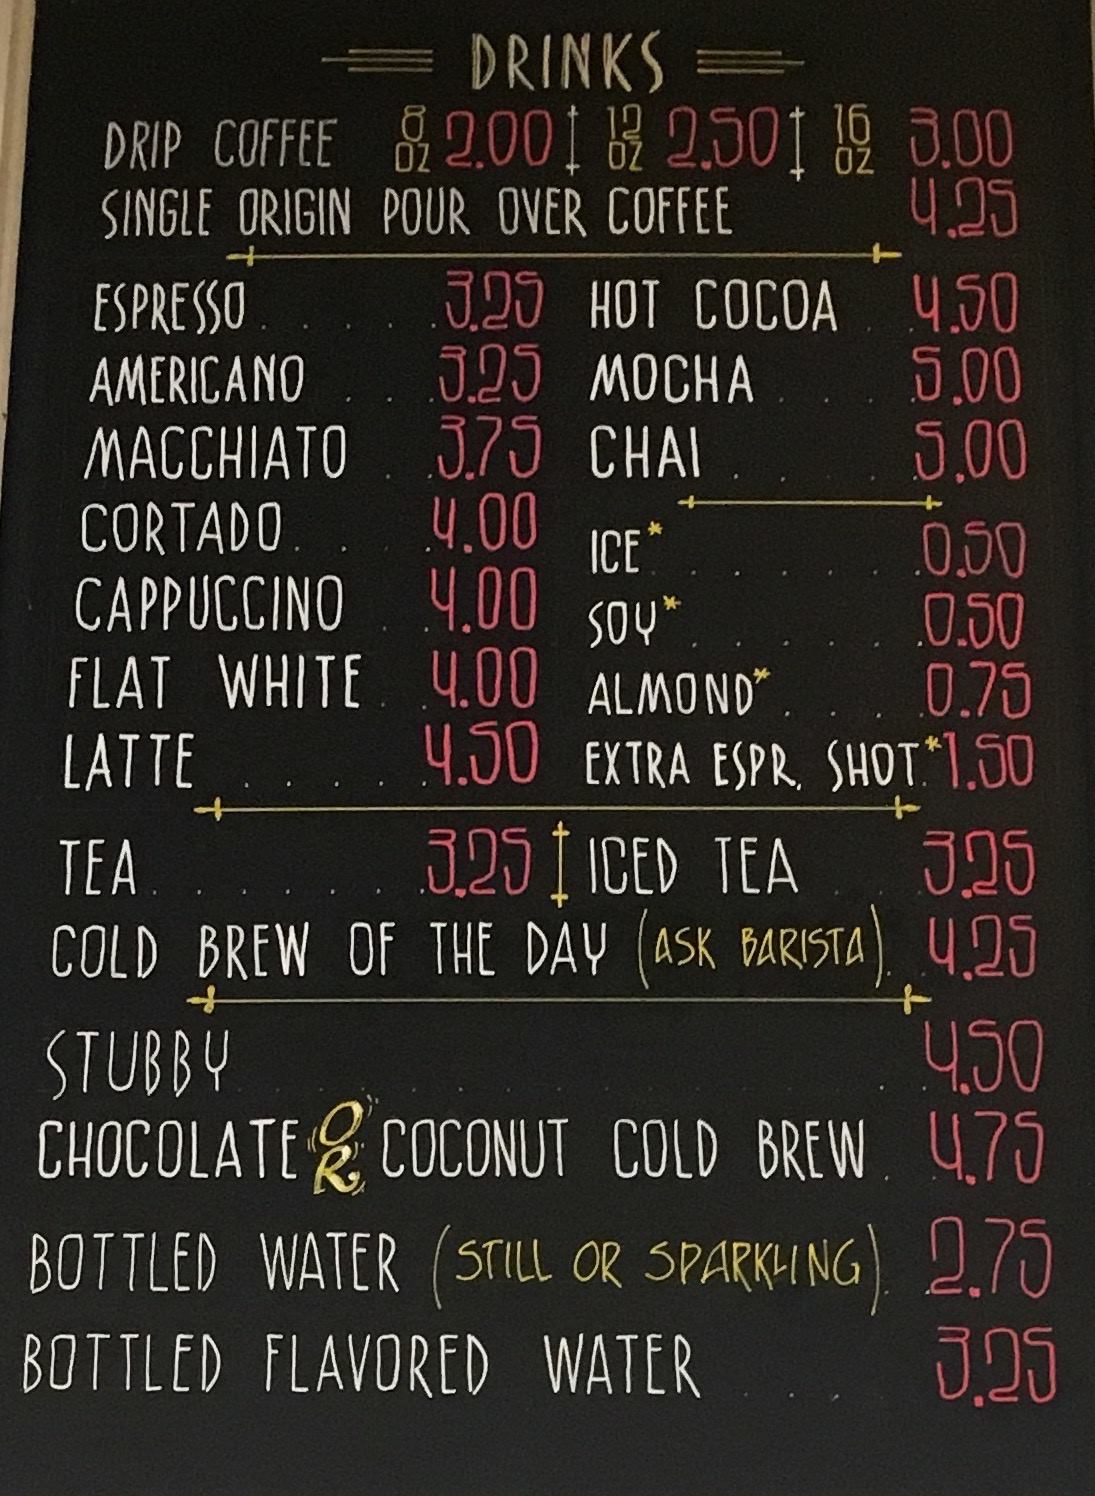 DRINKS
DRIP COFFEE 8 OZ 2.00 12 OZ 2.50 16 OZ 3.00
SINGLE ORIGIN POUR OVER COFFEE 4.25
ESPRESSO . . . . . 3.25 HOT COCOA . . 4.50
AMERICANO . . . 3.25 MOCHA . . . . 5.00
MACCHIATO . . 3.75 CHAI . . . . . 5.00
CORTADO . . . . 4.00
ICE* . . . . . . 0.50
CAPPUCCINO . . 4.00
SOY* . . . . . . 0.50
FLAT WHITE . . 4.00 ALMOND* . . . . 0.75
LATTE . . . . . 4.50 EXTRA ESPR. SHOT*. 1.50
TEA . . . . . . . 3.25 ICED TEA . . . 3.25
COLD BREW OF THE DAY (ASK BARISTA) . . 4.25
STUBBY . . . . . . . . . . 4.50
CHOCOLATE OR COCONUT COLD BREW . 4.75
BOTTLED WATER (STILL OR SPARKLING) . . 2.75
BOTTLED FLAVORED WATER . . . 3.25